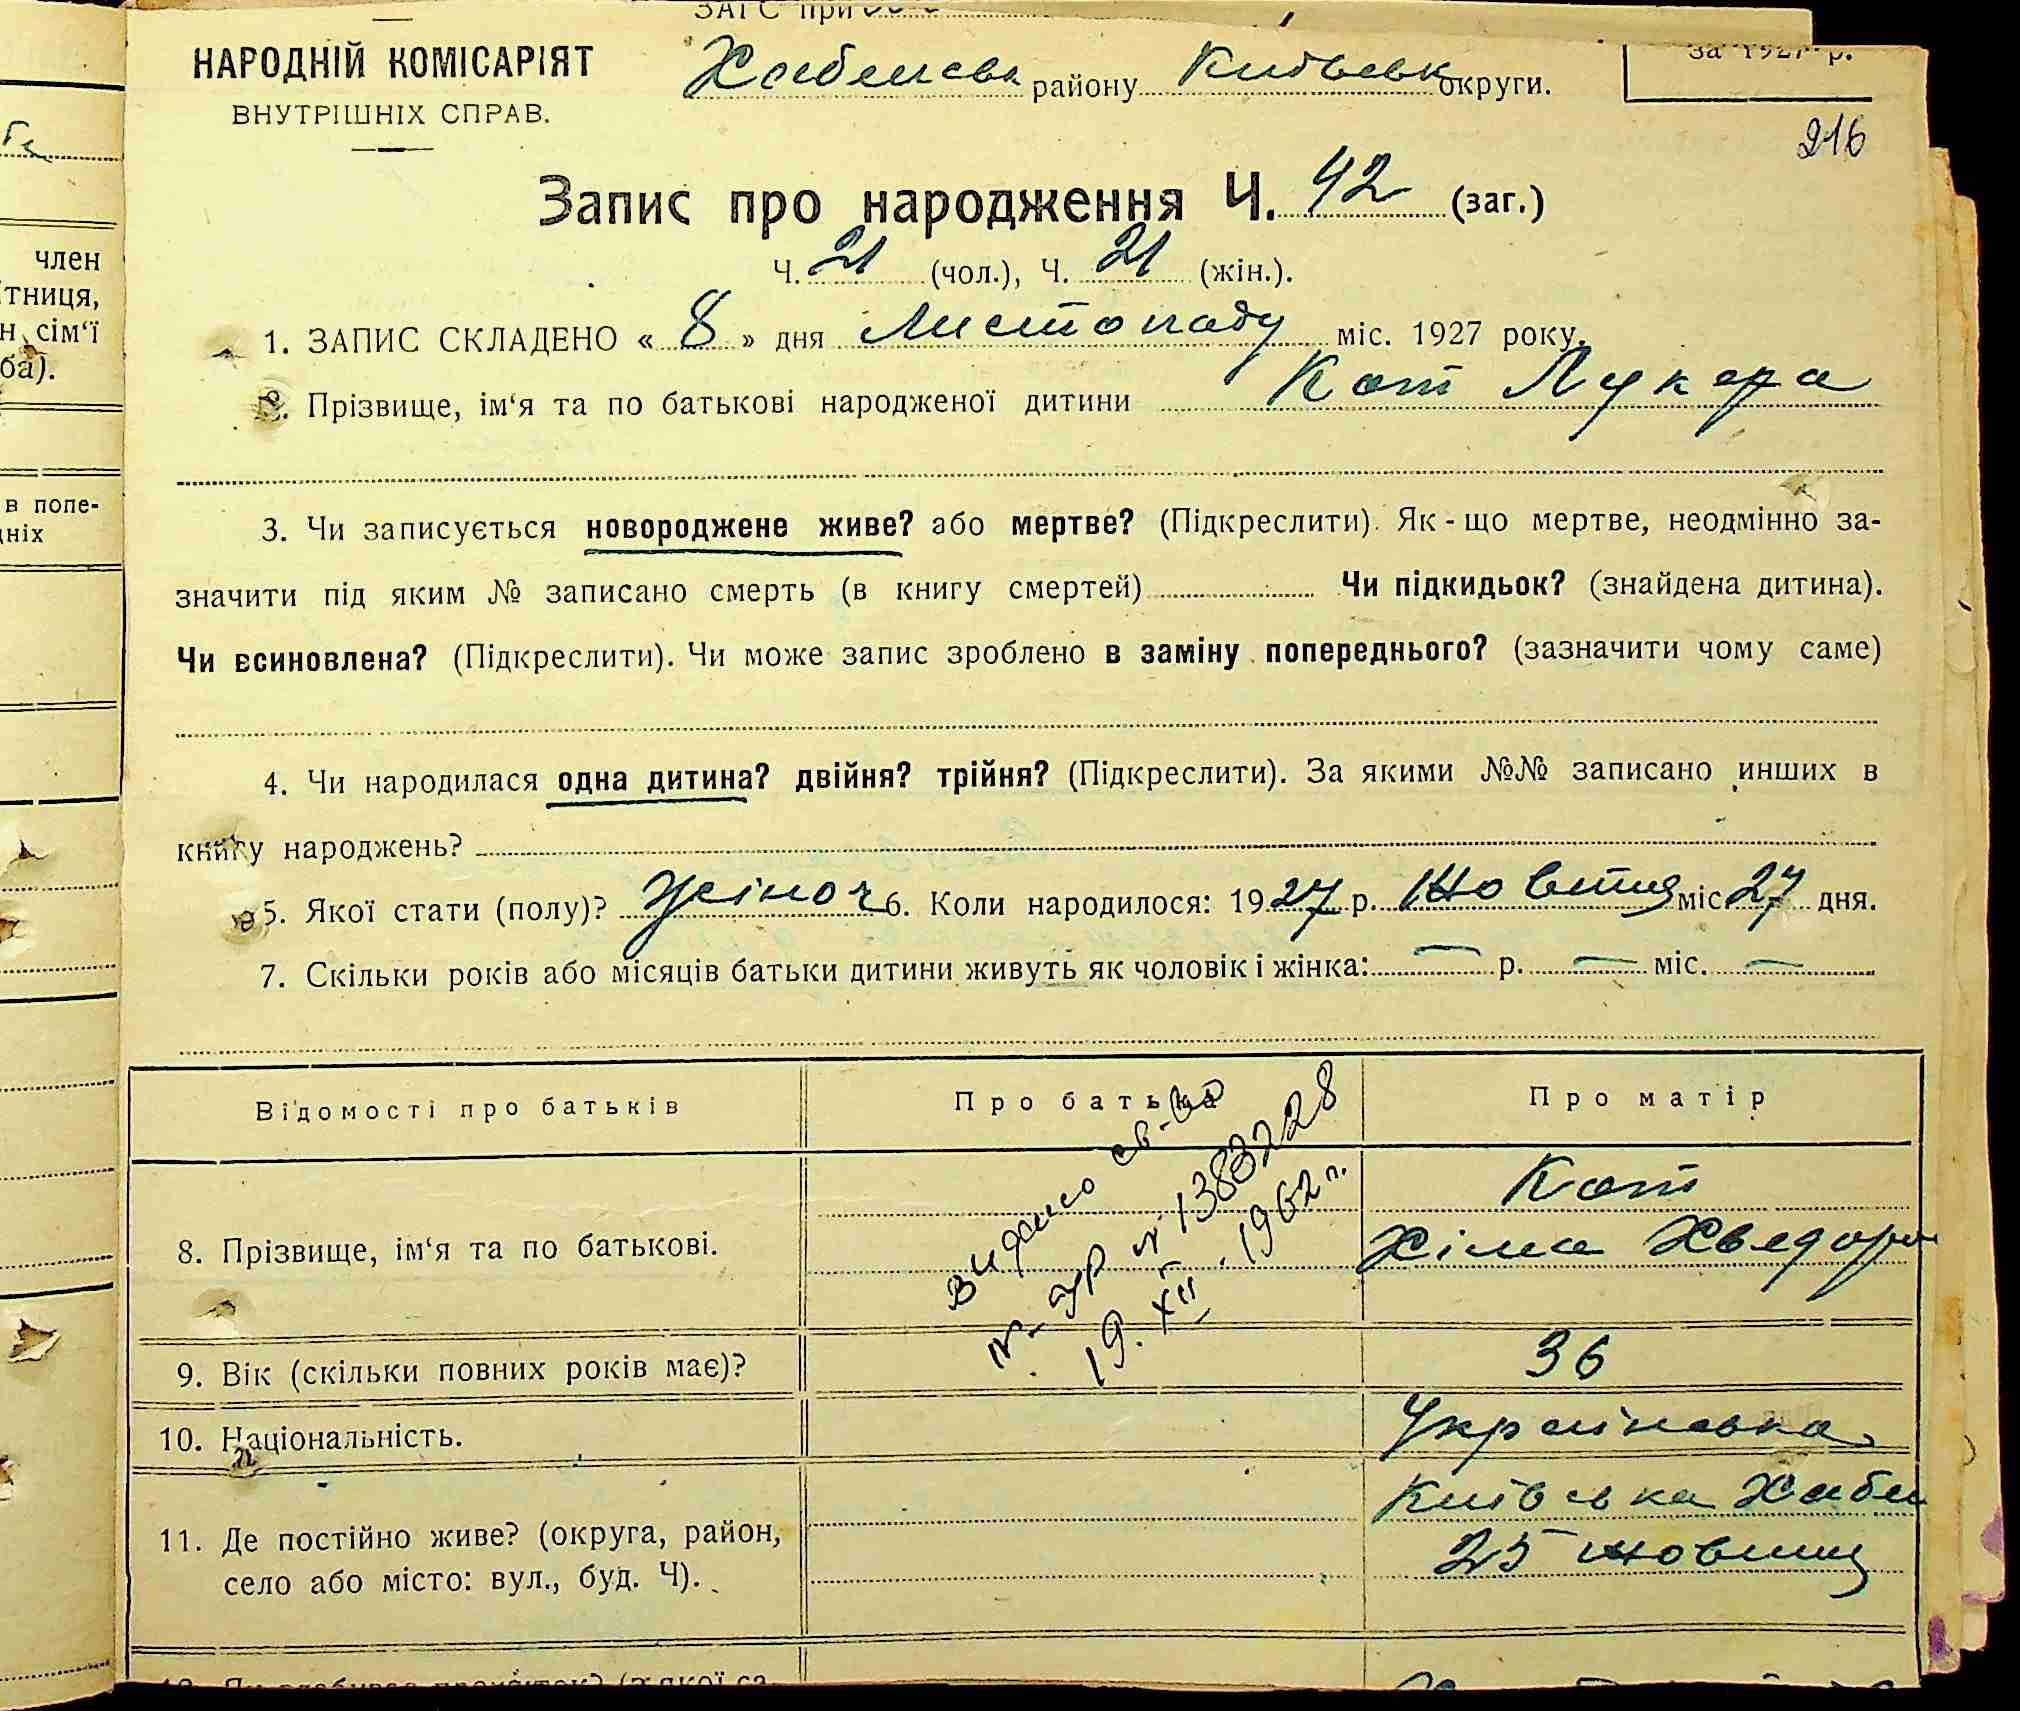 ЗАГС при
НАРОДНІЙ КОМІСАРІЯТ
ВНУТРІШНІХ СПРАВ.
Хабенськ району Київськ округи.
за 1927 р.
216
Запис про народження Ч. 42 (заг.)
Ч. 21 (чол.), Ч. 21 (жін.).
1. ЗАПИС СКЛАДЕНО « 8 » дня Листопаду міс. 1927 року.
2. Прізвище, ім‘я та по батькові народженої дитини Кот Лукера
3. Чи записується новороджене живе? або мертве? (Підкреслити). Як-що мертве, неодмінно за-
значити під яким № записано смерть (в книгу смертей) Чи підкидьок? (знайдена дитина).
Чи всиновлена? (Підкреслити). Чи може запис зроблено в заміну попереднього? (зазначити чому саме)
4. Чи народилася одна дитина? двійня? трійня? (Підкреслити). За якими №№ записано инших в
книгу народжень?
5. Якої стати (полу)? жіноч 6. Коли народилося: 1927 р. Жовтня міс. 27 дня.
7. Скільки років або місяців батьки дитини живуть як чоловік і жінка: — р. — міс. —
Відомості про батьків Про батька Про матір
8. Прізвище, ім‘я та по батькові.
Кот
Хіма Хведор
видано св-во
№ 1383228
19. XII. 1962 р.
9. Вік (скільки повних років має)? 36
10. Національність. Українська
11. Де постійно живе? (округа, район,
село або місто: вул., буд. Ч).
Київська Хабен
25 жовтня
член
тниця,
н сім‘ї
ба).
в попе-
дніх